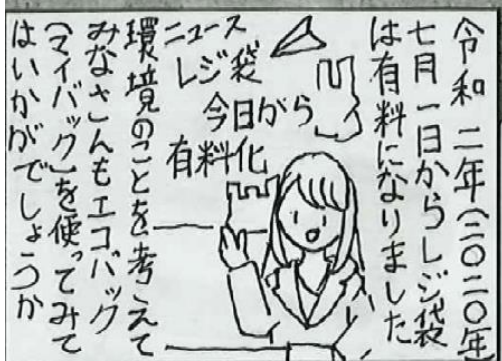 令和二年(二〇二〇年)
七月一日からレジ袋
は有料になりました
ニュース
レジ袋
今日から
有料化
環境のことを考えて
みなさんもエコバック
(マイバック)を使ってみて
はいかがでしょうか